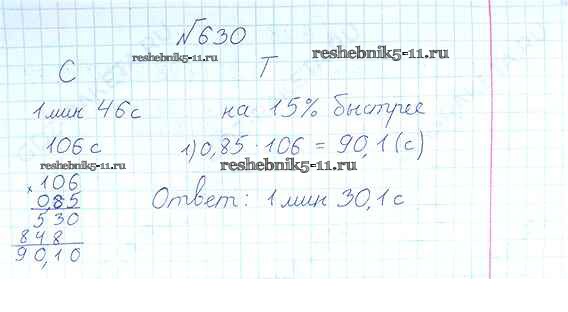 №630
reshebnik5-11.ru reshebnik5-11.ru
С Т
1 мин 46 с на 15% быстрее
106 с 1) 0,85 · 106 = 90,1 (с)
reshebnik5-11.ru reshebnik5-11.ru
× 106
0,85
530
848
90,10
Ответ: 1 мин 30,1 с